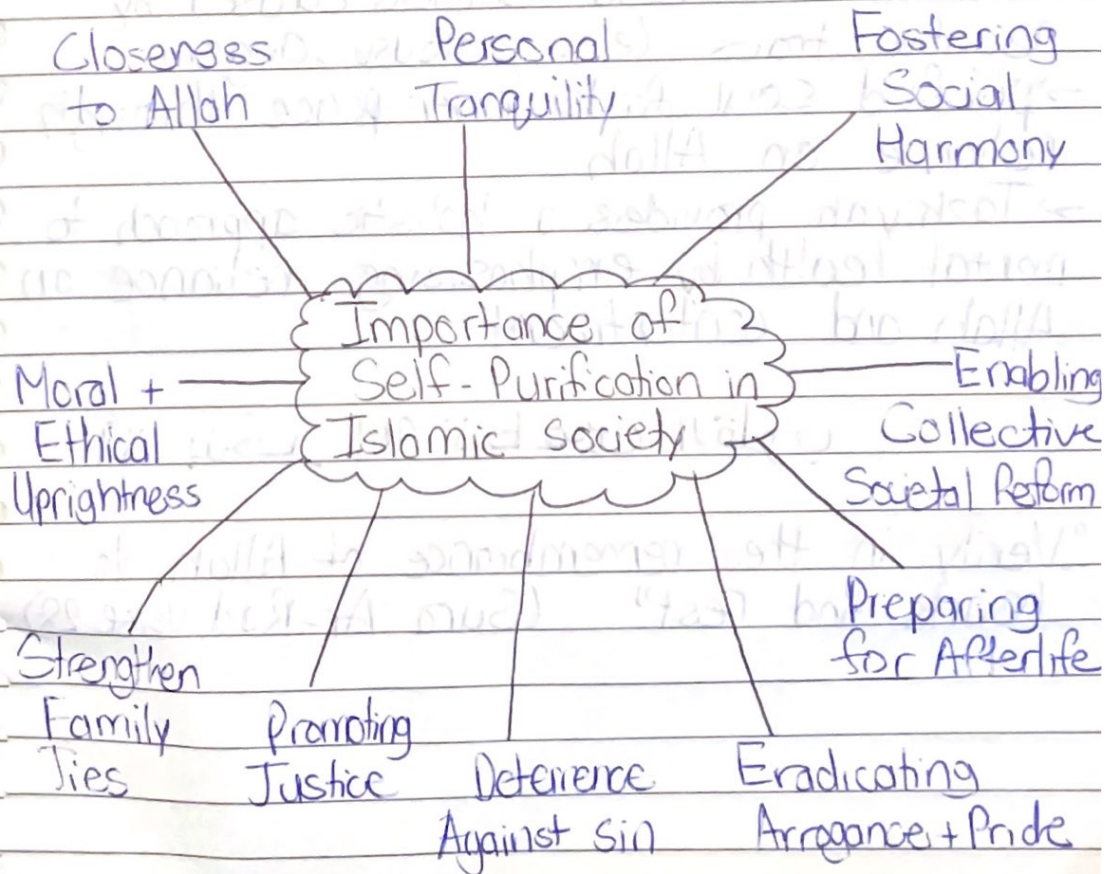 Closeness
to Allah
Personal
Tranquility
Fostering
Social
Harmony
Importance of
Self-Purification in
Islamic society
Moral +
Ethical
Uprightness
Enabling
Collective
Societal Reform
Preparing
for Afterlife
Strengthen
Family
Ties
Promoting
Justice
Deterrence
Against sin
Eradicating
Arrogance + Pride